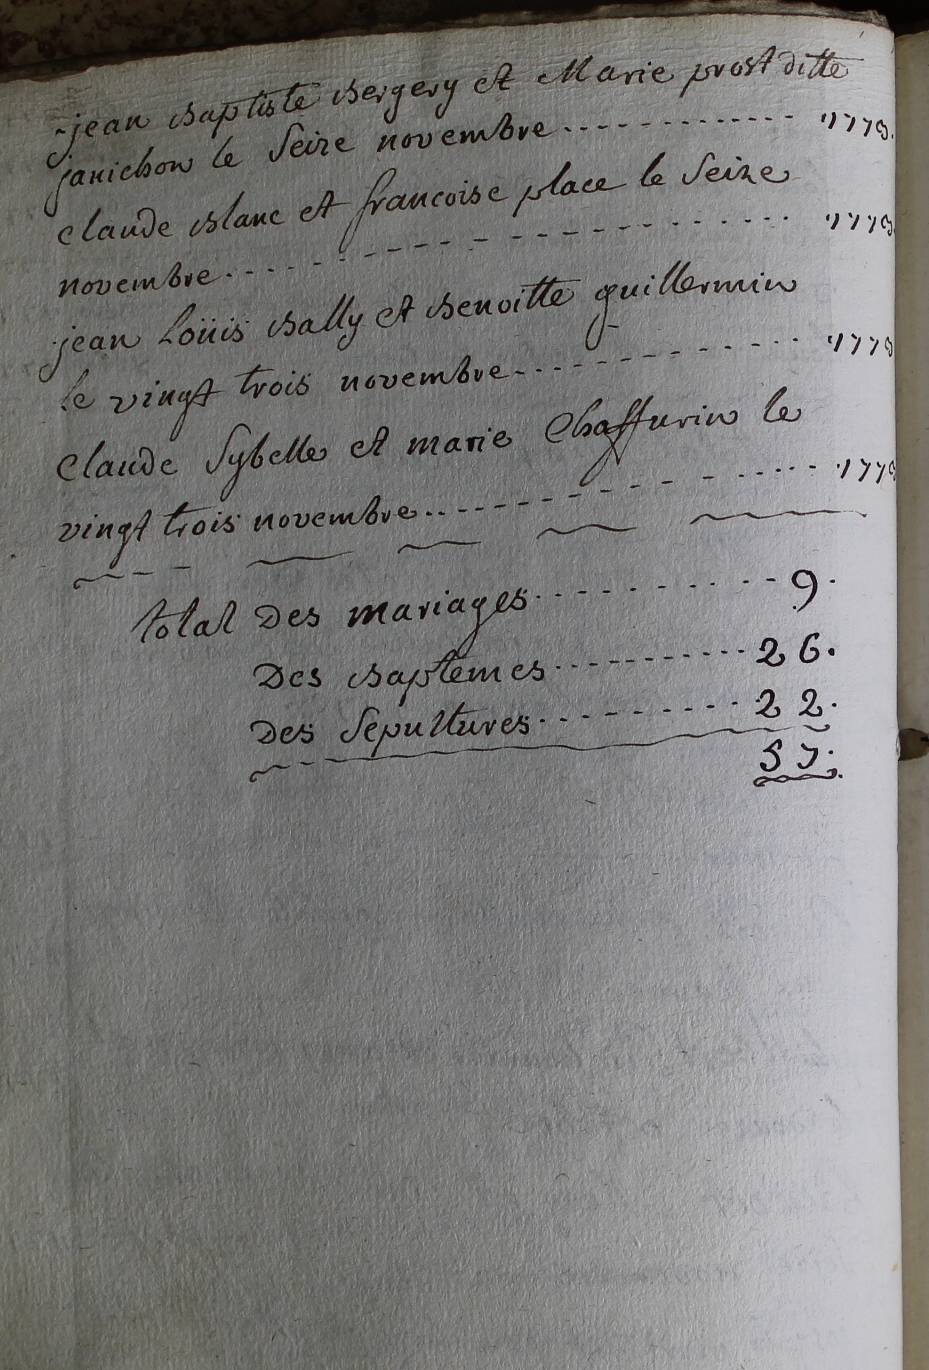 jean baptiste bergery et Marie prost ditte
janichon le seize novembre ............. 1778.
claude blanc et francoise place le seize
novembre ............. 1778
jean Loüis bally et benoitte guillermin
le vingt trois novembre ............. 1778
claude Sybelle et marie Chaffurin le
vingt trois novembre ............. 1778
total Des mariages .......... 9.
Des baptemes .......... 26.
Des Sepultures .......... 22.
57.